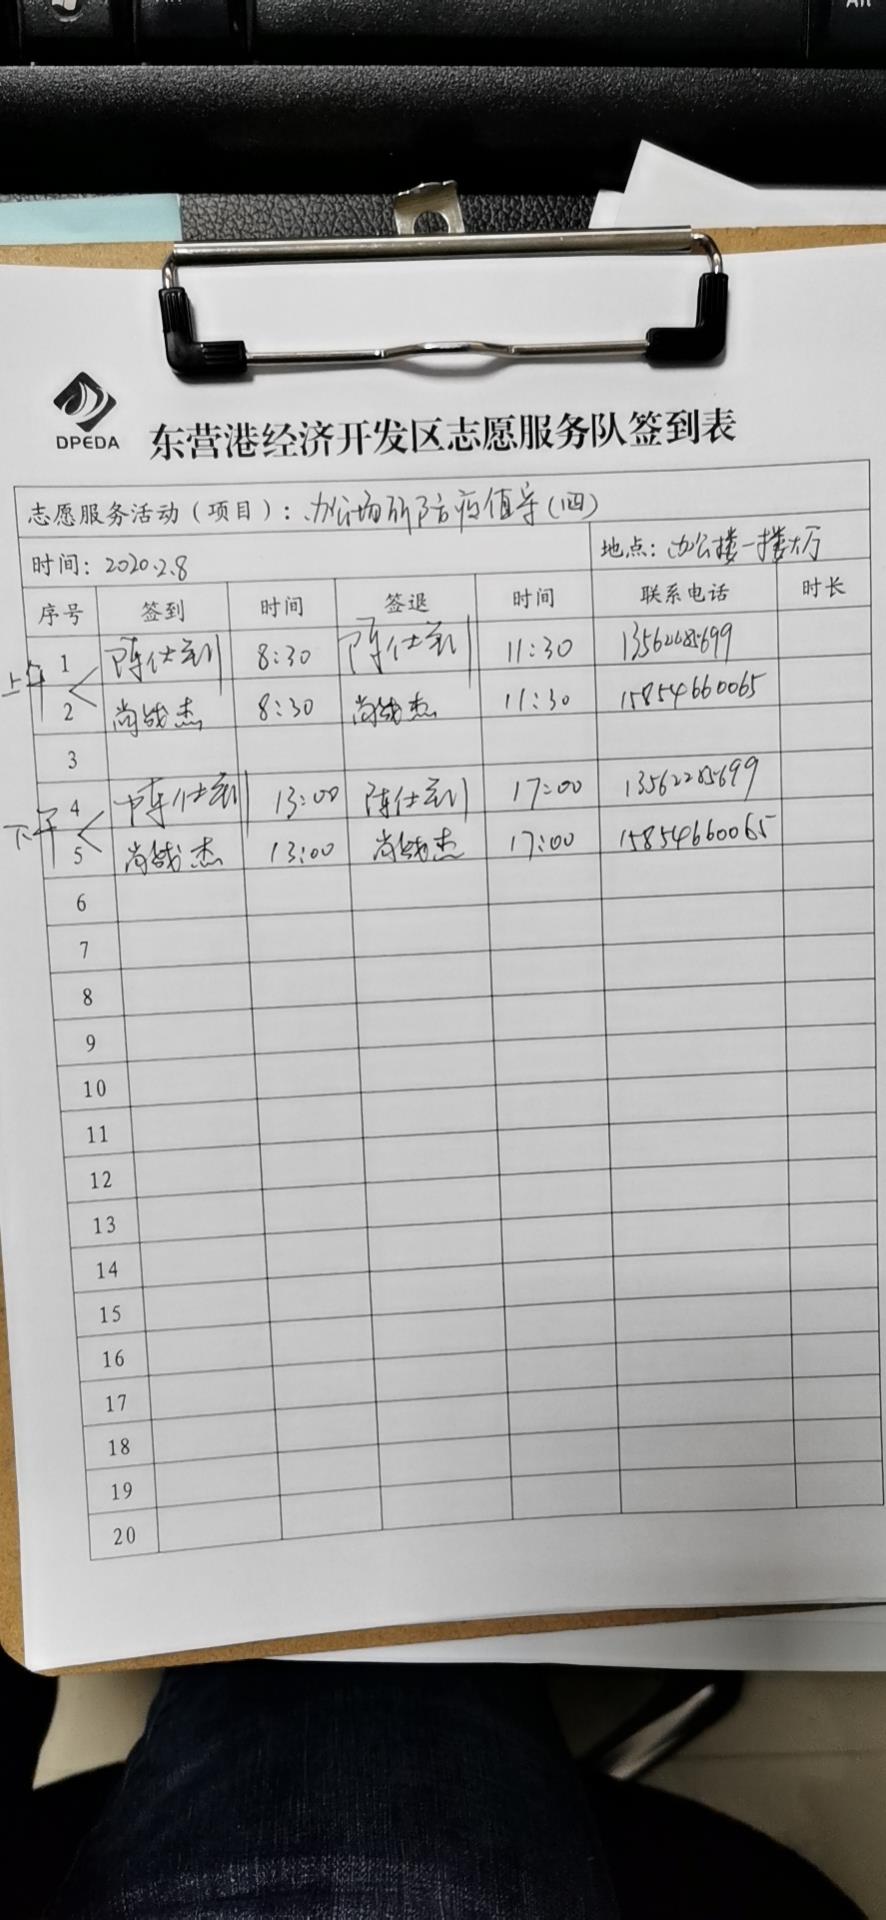 DPEDA
东营港经济开发区志愿服务队签到表
志愿服务活动（项目）：办公场所防疫值守(四)
时间：2020.2.8 地点：办公楼一楼大厅
序号 签到 时间 签退 时间 联系电话 时长
上午
1 陈仕 8:30 陈仕 11:30 13562285699
2 尚战杰 8:30 尚战杰 11:30 15854660065
3
下午
4 陈仕 13:00 陈仕 17:00 13562285699
5 尚战杰 13:00 尚战杰 17:00 15854660065
6
7
8
9
10
11
12
13
14
15
16
17
18
19
20